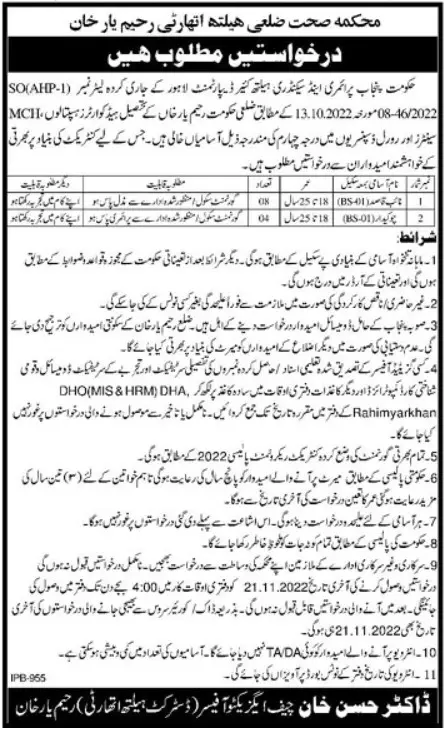 محکمہ صحت ضلعی ہیلتھ اتھارٹی رحیم یار خان
درخواستیں مطلوب ہیں
حکومت پنجاب پرائمری اینڈ سیکنڈری ہیلتھ کئیر ڈیپارٹمنٹ لاہور کے جاری کردہ لیٹر نمبر SO(AHP-1)
08-46/2022 مورخہ 13.10.2022 کے مطابق ضلعی حکومت رحیم یار خاں کے تحصیل ہیڈ کوارٹرز ہسپتالوں، MCH
سینٹرز اور رورل ڈسپنسریوں میں درجہ چہارم کی مندرجہ ذیل آسامیاں خالی ہیں۔ جس کے لیے کنٹریکٹ کی بنیاد پر بھرتی
کے خواہشمند امیدواران سے درخواستیں مطلوب ہیں۔
نمبر شمار نام آسامی بمعہ سکیل عمر تعداد مطلوبہ قابلیت دیگر مطلوبہ قابلیت
1 نائب قاصد (BS-01) 18 تا 25 سال 08 گورنمنٹ سکول / منظور شدہ ادارے سے مڈل پاس ہو اپنے کام میں تجربہ رکھتا ہو
2 چوکیدار (BS-01) 18 تا 25 سال 04 گورنمنٹ سکول / منظور شدہ ادارے سے پرائمری پاس ہو اپنے کام میں تجربہ رکھتا ہو
شرائط:
1۔ ماہانہ تنخواہ آسامی کے بنیادی پے سکیل کے مطابق ہوگی۔ دیگر شرائط بعد از تعیناتی حکومت کے مجوزہ قواعد و ضوابط کے مطابق
ہوں گی اور تعیناتی کے آرڈر میں درج ہوں گی۔
2۔ غیر حاضری / ناقص کارکردگی کی صورت میں ملازمت سے فوراً علیحدگی بغیر کسی نوٹس کے کی جاسکے گی۔
3۔ صوبہ پنجاب کے حامل ڈومیسائل امیدوار درخواست دینے کے اہل ہیں۔ ضلع رحیم یار خان کے سکونتی امیدواران کو ترجیح دی جائے
گی۔ عدم دستیابی کی صورت میں دیگر اضلاع کے امیدواران کو میرٹ کی بنیاد پر بھرتی کیا جائے گا۔
4۔ کسی گزیٹیڈ آفیسر کے تصدیق شدہ تعلیمی اسناد / حاصل کردہ نمبروں کی تفصیلی سرٹیفکیٹ اور تجربے کے سرٹیفکیٹ ڈومیسائل و قومی
شناختی کارڈ کمپیوٹرائزڈ اور دیگر کاغذات دفتری اوقات میں سادہ کاغذ پر لکھ کر DHO(MIS & HRM) DHA,
Rahimyarkhan کے دفتر میں مقررہ تاریخ تک جمع کروائیں۔ نامکمل یا تاخیر سے موصول ہونے والی درخواستوں پر غور نہیں
کیا جائے گا۔
5۔ تمام بھرتی گورنمنٹ کی وضع کردہ کنٹریکٹ ریکروٹمنٹ پالیسی 2022 کے مطابق ہوگی۔
6۔ حکومتی پالیسی کے مطابق میرٹ پر آنے والے امیدوار کو پانچ سال کی رعایت ہوگی تاہم خواتین کے لئے (۳) تین سال کی
مزید رعایت ہوگی عمر کا تعین درخواست کی آخری تاریخ سے ہوگا۔
7۔ ہر آسامی کے لئے علیحدہ درخواست دینا ہوگی۔ اس اشاعت سے پہلے دی گئی درخواستوں پر غور نہیں ہوگا۔
8۔ حکومت کی پالیسی کے مطابق تمام کوٹہ جات کو ملحوظ خاطر رکھا جائے گا۔
9۔ سرکاری و غیر سرکاری ادارے کے ملازمین اپنے محکمہ کی وساطت سے درخواست بھجیں۔ نامکمل درخواستیں قبول نہ ہوں گی
درخواستیں وصول کرنے کی آخری تاریخ 21.11.2022 کو دفتری اوقات کار میں 4:00 بجے دن تک دفتر میں وصول کی
جائیگی۔ بعد میں آنے والی درخواستیں قابل قبول نہ ہوں گی۔ بذریعہ ڈاک / کورئیر سروس سے بھیجی جانے والی درخواستوں کی آخری
تاریخ بھی 21.11.2022 ہی ہوگی۔
10۔ انٹرویو پر آنے والے امیدوار کو کوئی TA/DA نہیں دیا جائے گا۔ آسامیوں کی تعداد میں کمی و بیشی ہو سکتی ہے۔
11۔ انٹرویو کی تاریخ دفتر کے نوٹس بورڈ پر آویزاں کی جائے گی۔
IPB-955
ڈاکٹر حسن خان چیف ایگزیکٹو آفیسر (ڈسٹرکٹ ہیلتھ اتھارٹی) رحیم یار خان